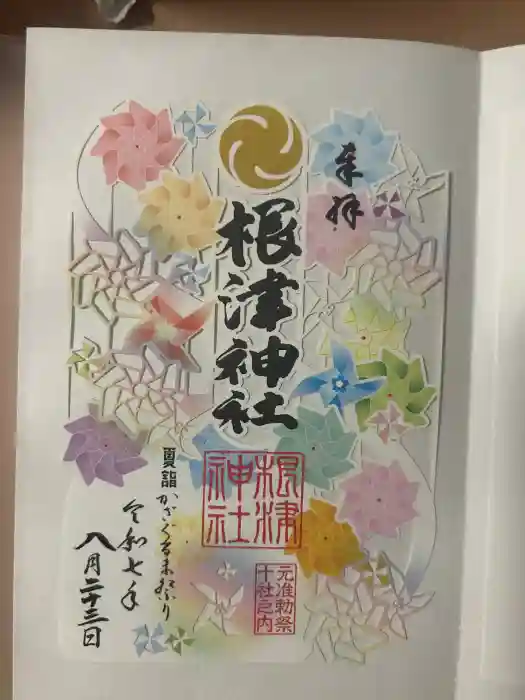 奉拝
根津神社
根津
神社
元准勅祭
十社之内
夏詣
かざぐるま祭り
令和七年
八月二十三日